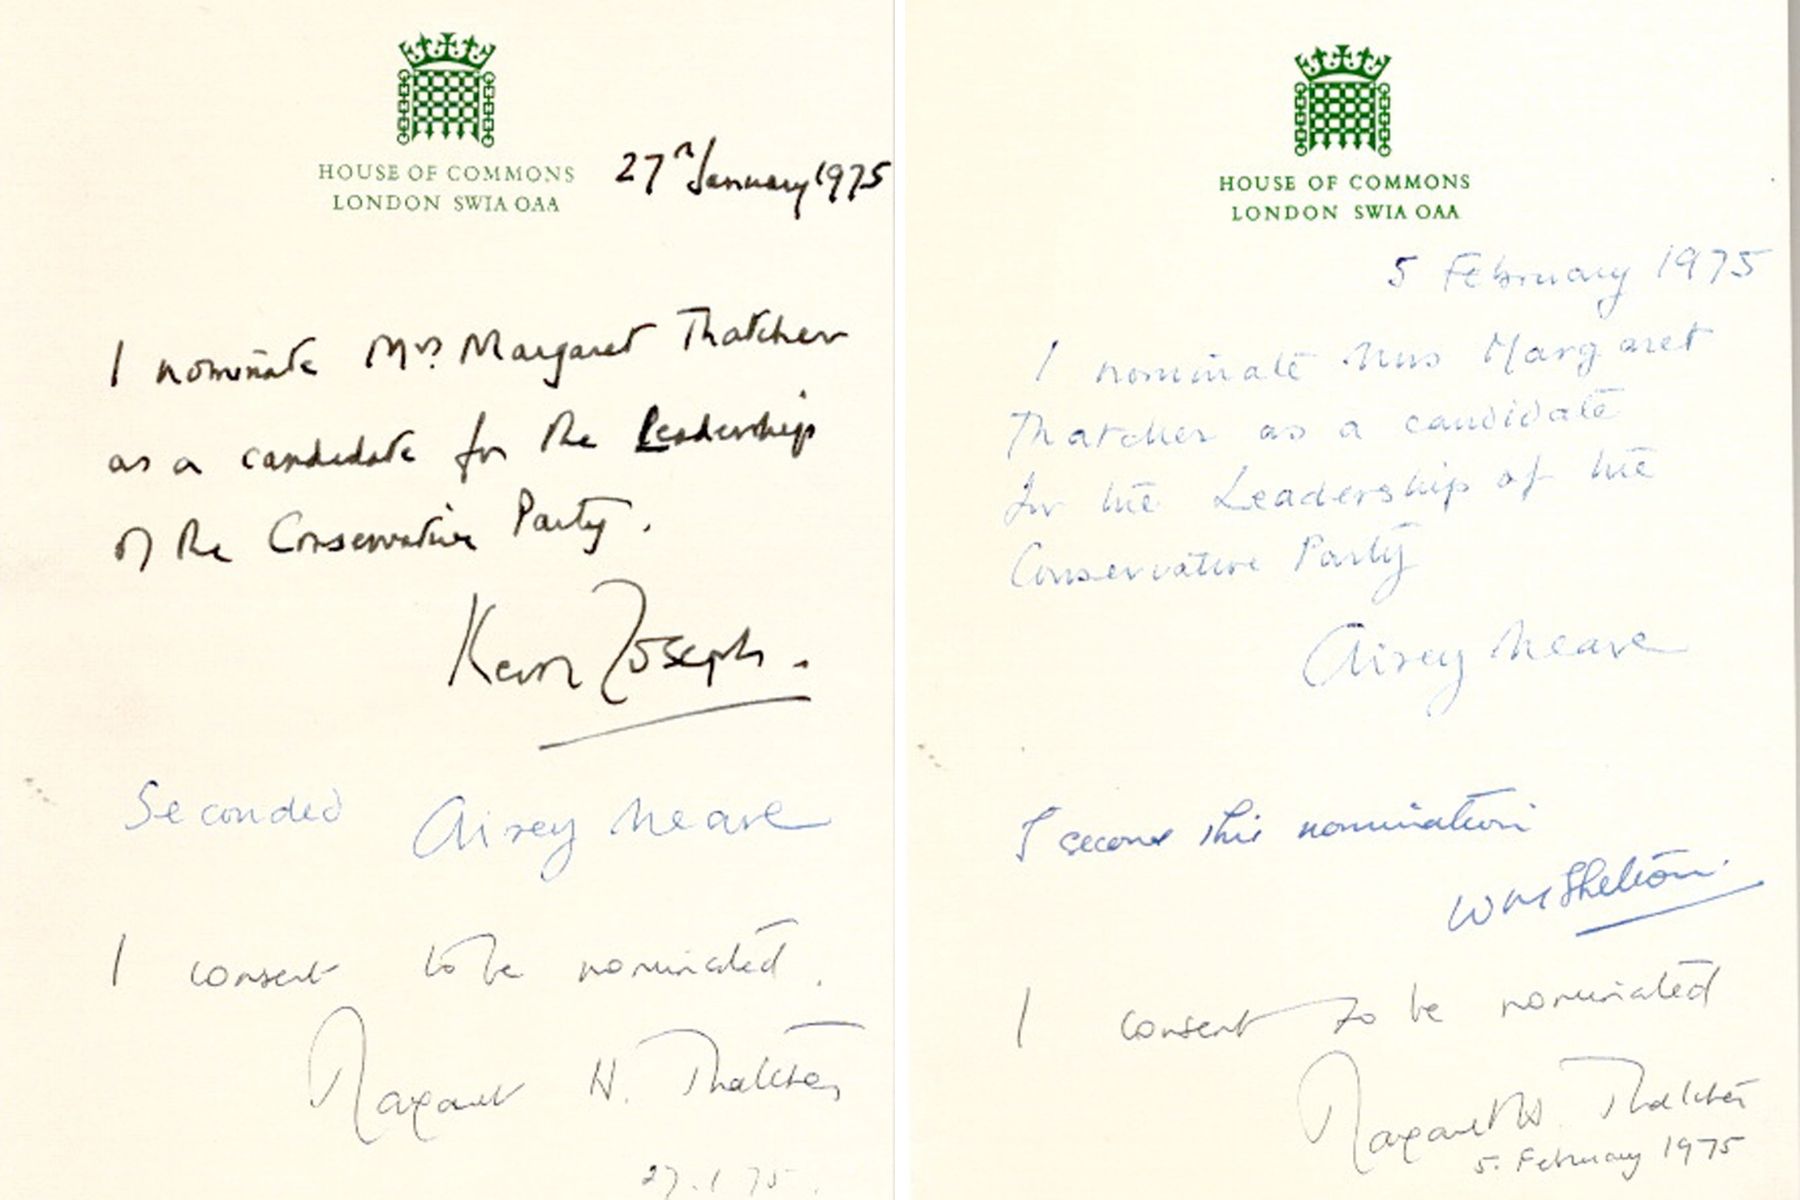 HOUSE OF COMMONS
LONDON SW1A OAA
27th January 1975
I nominate Mrs. Margaret Thatcher
as a candidate for the Leadership
of the Conservative Party.
Keith Joseph.
Seconded Airey Neave
I consent to be nominated.
Margaret H. Thatcher
27.1.75.
HOUSE OF COMMONS
LONDON SW1A OAA
5 February 1975
I nominate Mrs Margaret
Thatcher as a candidate
for the Leadership of the
Conservative Party
Airey Neave
I second this nomination
W M Shelton.
I consent to be nominated
Margaret H. Thatcher
5. February 1975